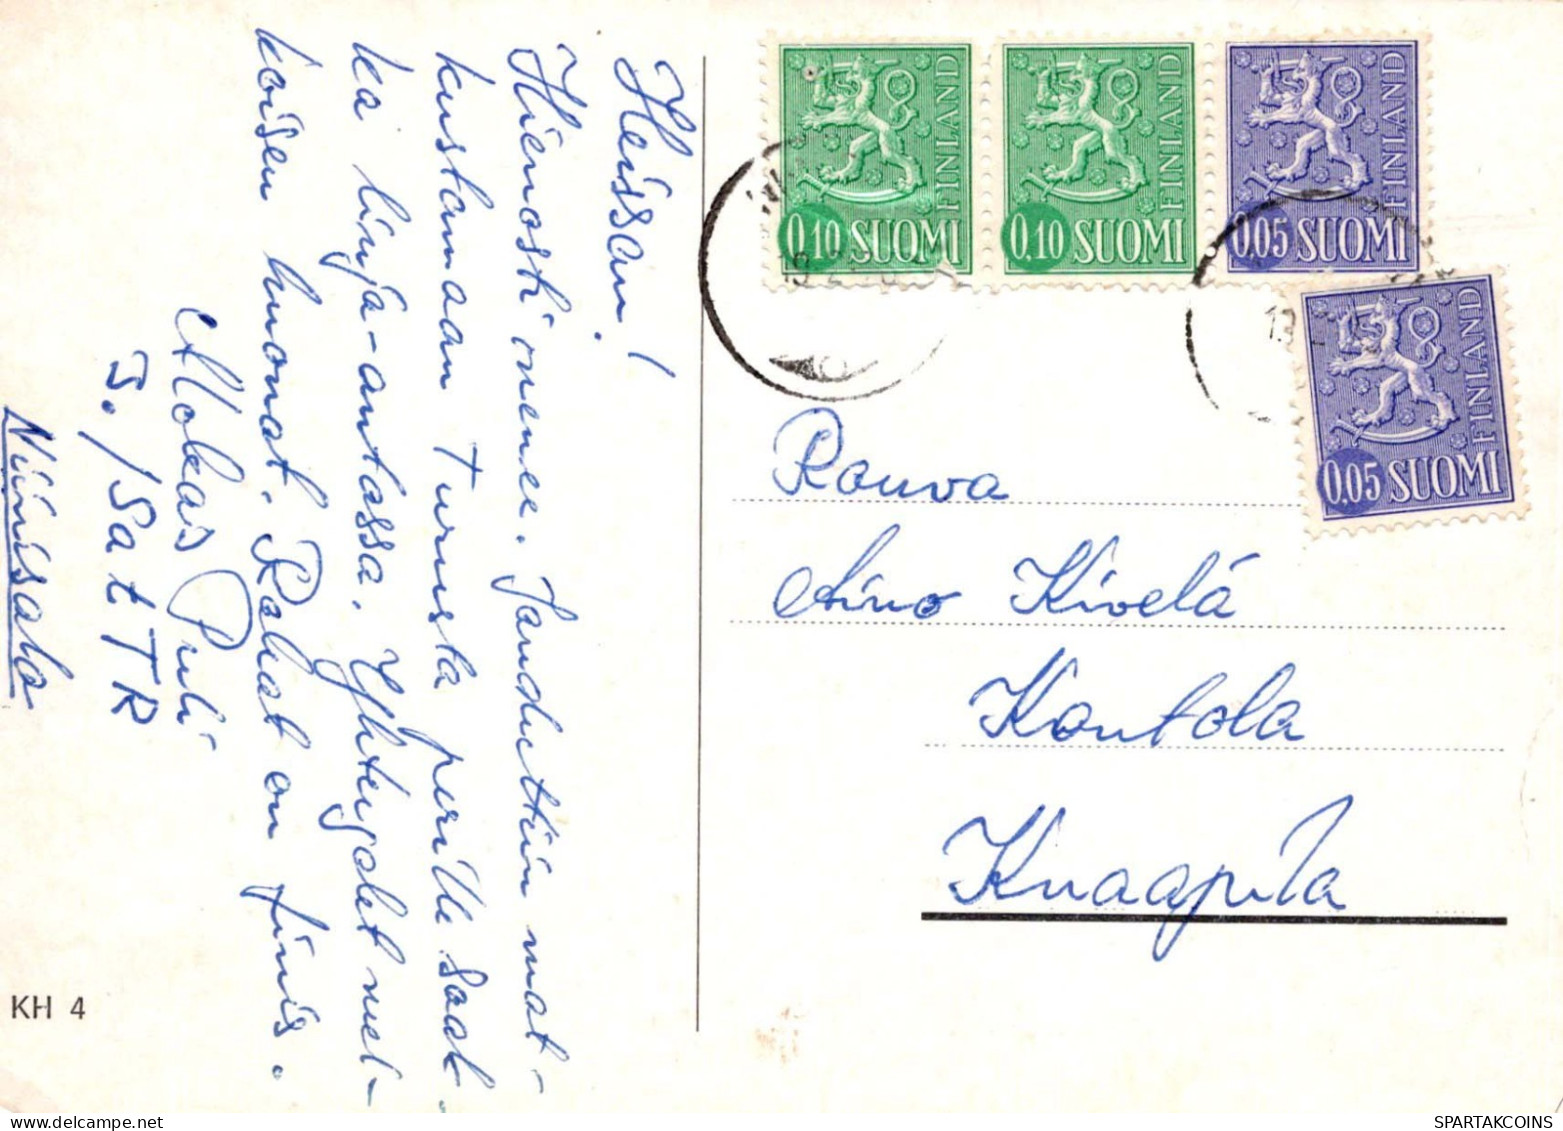 Heissan!
Hienosti menee. Jouduttiin mat-
kustamaan Turusta perille saak-
ka linja-autossa. Yhteydet mel-
koisen huonot. Rahat on finis.
Puli
J./Sat TR
Niinisalo
KH 4
0,10 SUOMI FINLAND
0,10 SUOMI FINLAND
0,05 SUOMI FINLAND
0,05 SUOMI FINLAND
Rouva
Aino Kivelä
Kontola
Knaapila
SPARTAKCOINS